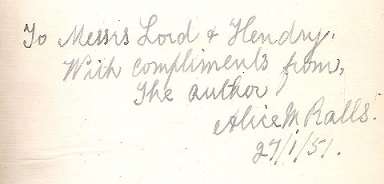 To Messrs Lord & Hendry.
With compliments from,
The author
Alice M Ralls.
27/1/51.